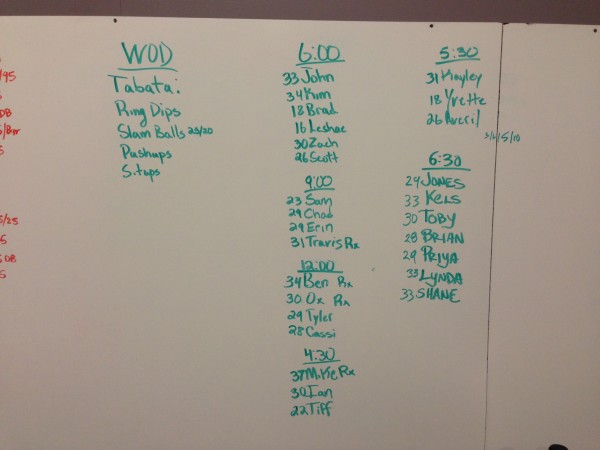 WOD
Tabata:
Ring Dips
Slam Balls 25/20
Pushups
Situps
6:00
33 John
34 Kim
18 Brad
16 Leshae
30 Zach
26 Scott
9:00
23 Sam
29 Chad
29 Erin
31 Travis Rx
12:00
34 Ben Rx
30 Ox Rx
29 Tyler
28 Cassi
4:30
37 Mike Rx
30 Ian
22 Tiff
5:30
31 Hayley
18 Yvette
26 Averil
6:30
29 JONES
33 KELS
30 TOBY
28 BRIAN
29 PRIYA
33 LYNDA
33 SHANE
/95
5/25